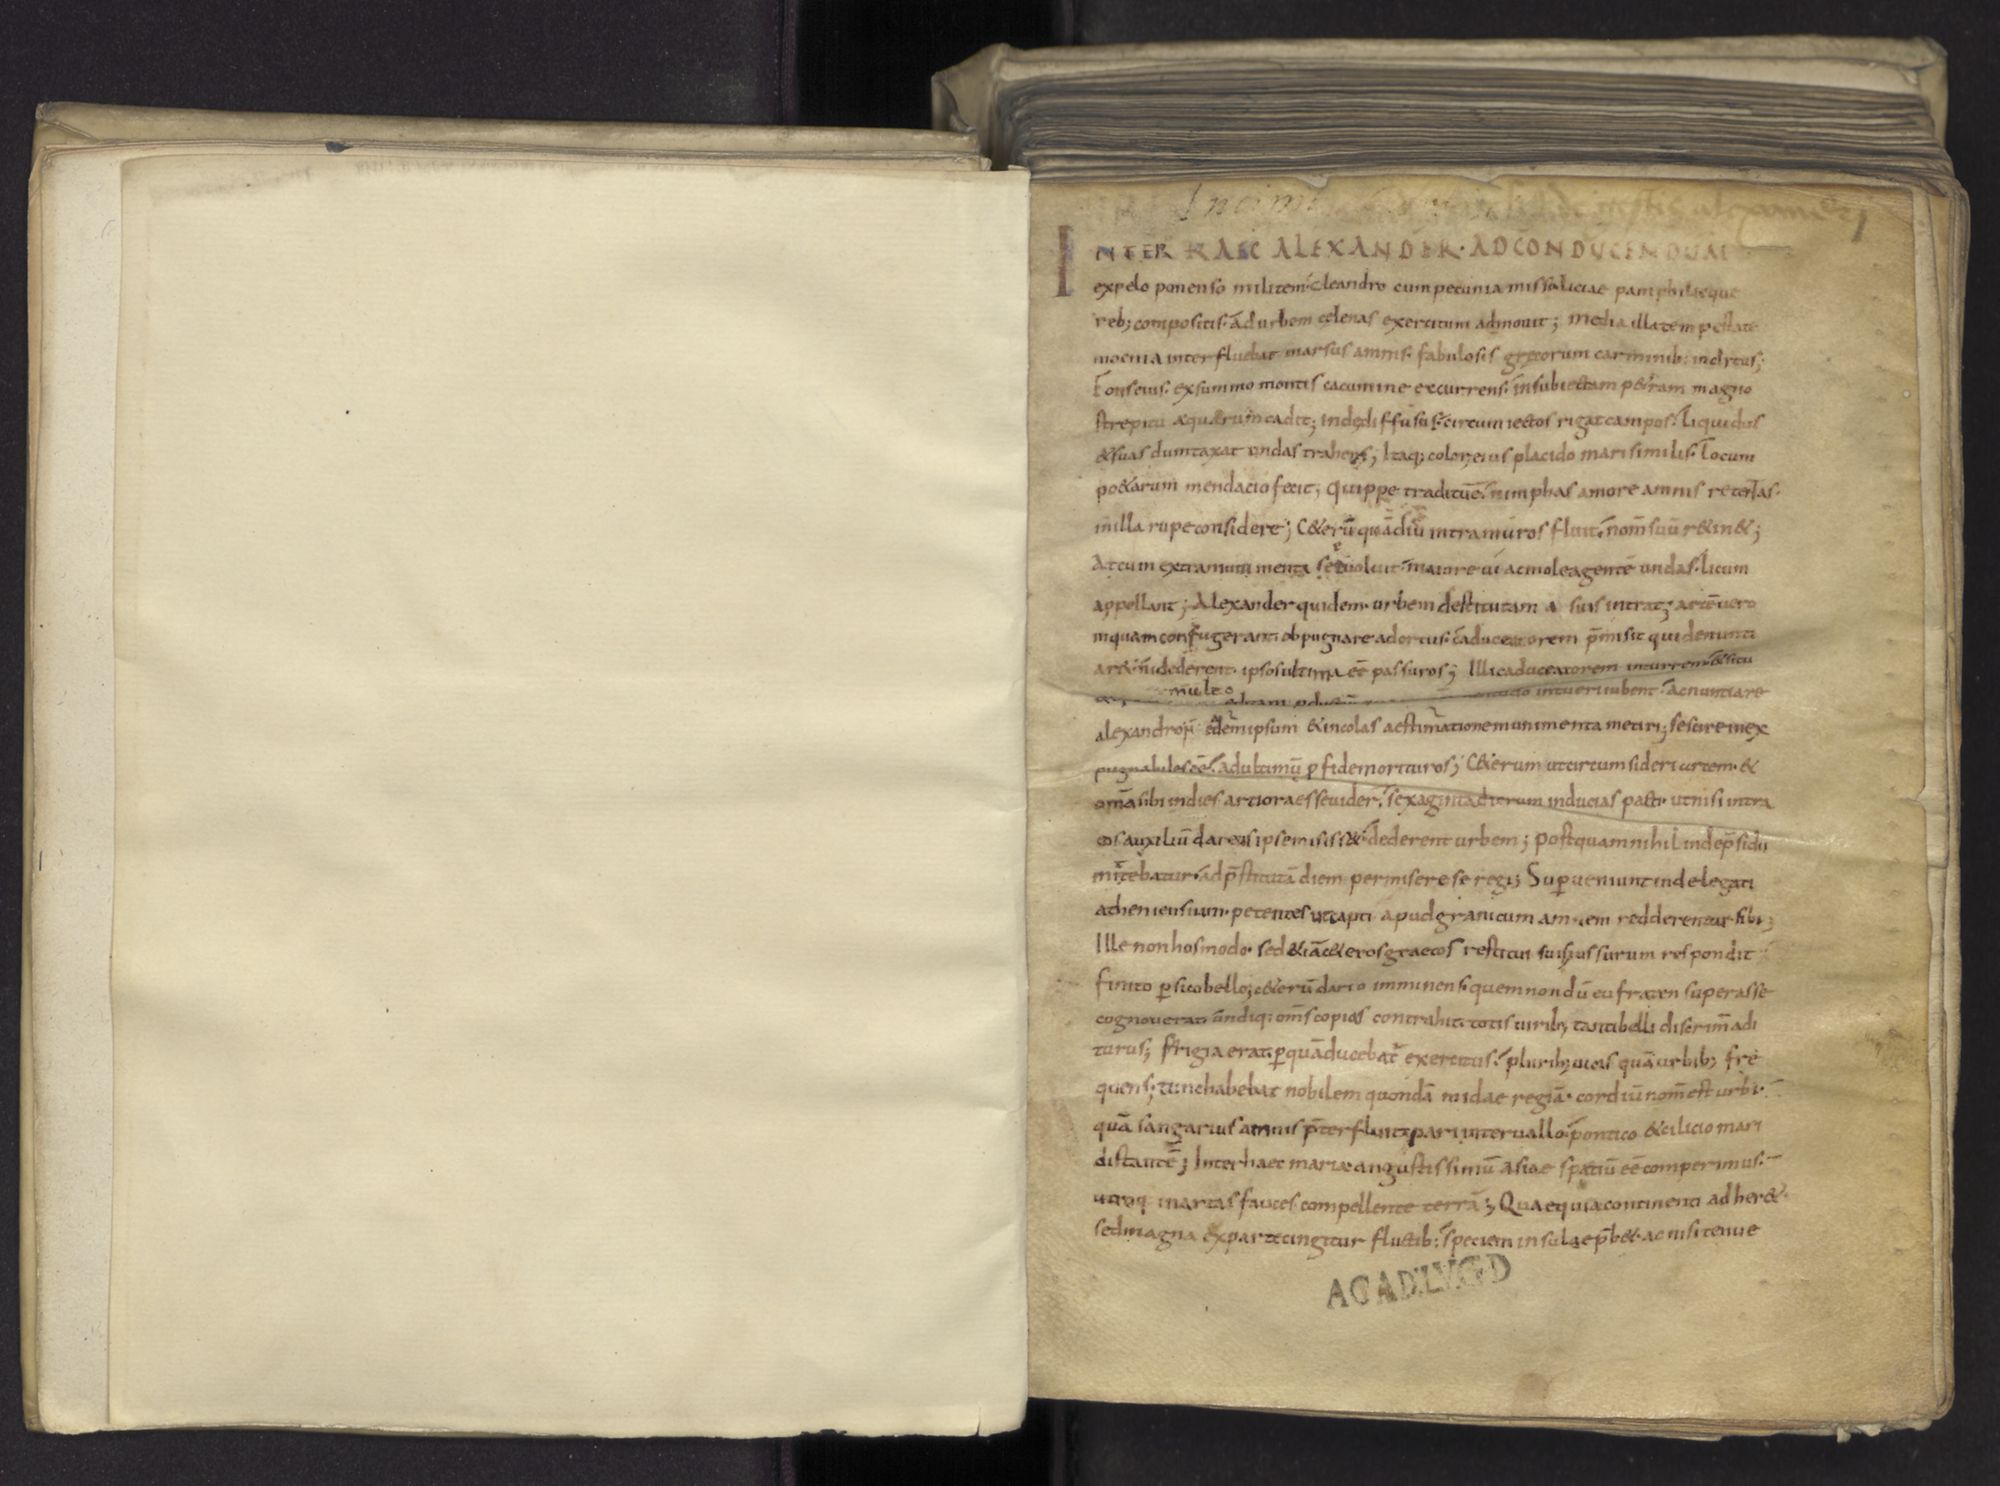 INTER HAEC ALEXANDER· AD CONDUCENDUM
expelo ponenso militem· cleandro cum pecunia misso· liciae pamphiliaeque
reb; compositis· ad urbem celenas exercitum admouit; Media illa tempestate
moenia interfluebat marsus amnis· fabulosis grecorum carminib: inclitus;
Fons eius· ex summo montis cacumine excurrens· in subiectam p&ram magno
strepitu aquarum cadit; inde diffusus· circumiectos rigat campos· liquidus
& suas dumtaxat undas trahens; Itaq; color eius placido mari similis· Locum
po&arum mendacio fecit; Quippe traditum· nimphas amore amnis retentas·
in illa rupe considere; C&erū quādiu intra muros fluit· nom̄ suū r&in&;
At cum extra munimenta se euoluit· maiore ui ac mole agentē undas· licum
appellant; Alexander quidem· urbem destitutam a suis intrat; arcē uero
in quam confugerant obpugnare adortus· caduceatorem p̄misit qui denunti
ar&· ni dederent· ipsos ultima eē passuros; Illi caduceatorem in turrem· & situ
multo
editam intueri iubent· ac nuntiare
alexandro· ipsum & incolas aestimatione munimenta metiri; se scire inex
pugnabiles eē· ad ultimū p fide morituros; C&erum ut circumsideri arcem· &
omā sibi indies artiora esse uider· sexaginta dierum inducias pacti· ut nisi intra
eos auxiliū dareus ipse misiss&· dederent urbem; postquam nihil inde p̄sidii
mittebatur· ad p̄stitutā diem permisere se regi; Superueniunt inde legati
atheniensium· petentes ut capti apud granicum amnem redderentur sibi;
Ille non hos modo· sed &iā c&eros graecos restitui suis iussurum respondit
finito p̄sico bello; c&erū dario imminens· quem nondū eufraten superasse
cognouerat· undiq; om̄s copias contrahit· totis uirib; tanti belli discrim̄ adi
turus; frigia erat· p quā ducebat exercitus· plurib; uicis quā urbib; fre
quens; tunc habebat nobilem quondā midae regiā· cordiū nom̄ est urbi·
quā sangarius amnis p̄terfluit· pari interuallo· pontico & cilicio mari
distantē; Inter haec maria angustissimū asiae spatiū eē comperimus·
utroq; in artas fauces compellente terrā; Quae quia continenti adher&·
sed magna ex parte cingitur fluctib: speciem insulae p̄b&· ac nisi tenue
ACAD. LVGD